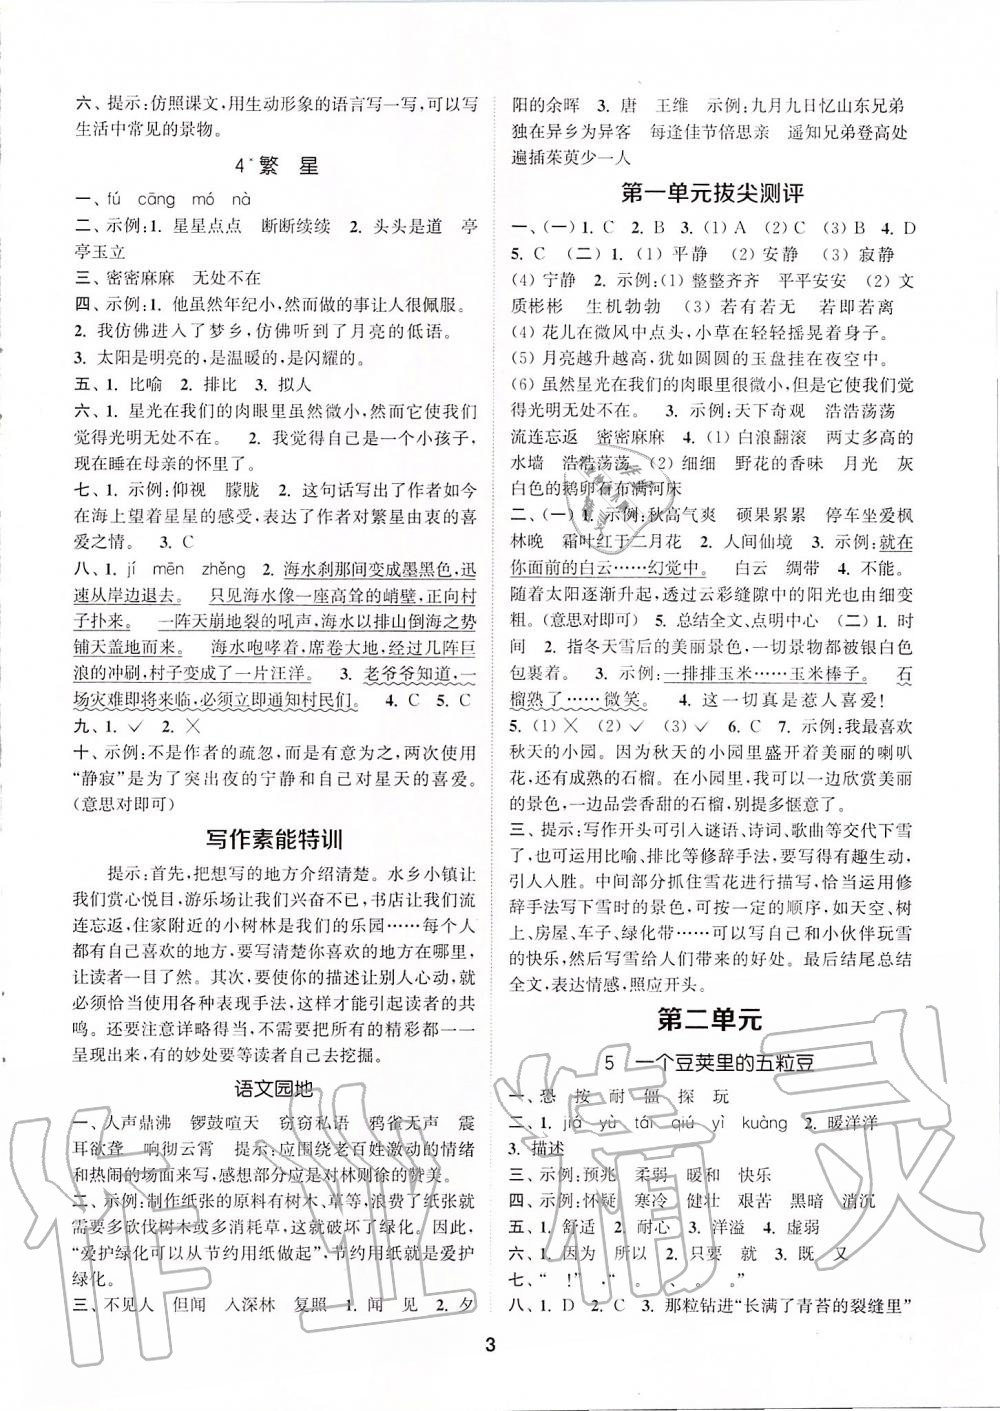 六、提示:仿照课文,用生动形象的语言写一写,可以写
生活中常见的景物。
4*繁 星
一、fú cāng mó nà
二、示例:1. 星星点点 断断续续 2. 头头是道 亭
亭玉立
三、密密麻麻 无处不在
四、示例:1. 他虽然年纪小,然而做的事让人很佩服。
2. 我仿佛进入了梦乡,仿佛听到了月亮的低语。
3. 太阳是明亮的,是温暖的,是闪耀的。
五、1. 比喻 2. 排比 3. 拟人
六、1. 星光在我们的肉眼里虽然微小,然而它使我们
觉得光明无处不在。 2. 我觉得自己是一个小孩子,
现在睡在母亲的怀里了。
七、1. 示例:仰视 朦胧 2. 这句话写出了作者如今
在海上望着星星的感受,表达了作者对繁星由衷的喜
爱之情。 3. C
八、1. jí mēn zhěng 2. 海水刹那间变成墨黑色,迅
速从岸边退去。 只见海水像一座高耸的峭壁,正向村
子扑来。 一阵天崩地裂的吼声,海水以排山倒海之势
铺天盖地而来。 海水咆哮着,席卷大地,经过几阵巨
浪的冲刷,村子变成了一片汪洋。 3. 老爷爷知道,一
场灾难即将来临,必须立即通知村民们。 4. C 5. C
九、1. ✓ 2. ╳
十、示例:不是作者的疏忽,而是有意为之,两次使用
“静寂”是为了突出夜的宁静和自己对星天的喜爱。
(意思对即可)
写作素能特训
提示:首先,把想写的地方介绍清楚。水乡小镇让
我们赏心悦目,游乐场让我们兴奋不已,书店让我们流
连忘返,住家附近的小树林是我们的乐园……每个人
都有自己喜欢的地方,要写清楚你喜欢的地方在哪里,
让读者一目了然。其次,要使你的描述让别人心动,就
必须恰当使用各种表现手法,这样才能引起读者的共
鸣。还要注意详略得当,不要把所有的精彩都一一
呈现出来,有的妙处要等读者自己去挖掘。
语文园地
一、人声鼎沸 锣鼓喧天 窃窃私语 鸦雀无声 震
耳欲聋 响彻云霄 提示:应围绕老百姓激动的情绪
和热闹的场面来写,感想部分应是对林则徐的赞美。
二、示例:制作纸张的原料有树木、草等,浪费了纸张就
需要多砍伐树木或多消耗草,这就破坏了绿化。因此,
“爱护绿化可以从节约用纸做起”,节约用纸就是爱护
绿化。
三、不见人 但闻 入深林 复照 1. 闻 见 2. 夕
阳的余晖 3. 唐 王维 示例:九月九日忆山东兄弟
独在异乡为异客 每逢佳节倍思亲 遥知兄弟登高处
遍插茱萸少一人
第一单元拔尖测评
一、(一)1. C 2. B 3. (1) A (2) C (3) B 4. D
5. C (二)1. (1) 平静 (2) 安静 (3) 寂静
(4) 宁静 2. 示例:(1) 整整齐齐 平平安安 (2) 文
质彬彬 生机勃勃 (3) 若有若无 若即若离
(4) 花儿在微风中点头,小草在轻轻摇晃着身子。
(5) 月亮越升越高,犹如圆圆的玉盘挂在夜空中。
(6) 虽然星光在我们的肉眼里很微小,但它使我们觉
得光明无处不在。 3. 示例:天下奇观 浩浩荡荡
流连忘返 密密麻麻 4. (1) 白浪翻滚 两丈多高的
水墙 浩浩荡荡 (2) 细细 野花的香味 月光 灰
白色的鹅卵石布满河床
二、(一)1. 示例:秋高气爽 硕果累累 停车坐爱枫
林晚 霜叶红于二月花 2. 人间仙境 3. 示例:就在
你面前的白云……幻觉中。 白云 绸带 4. 不能。
随着太阳逐渐升起,透过云彩缝隙中的阳光也由细变
粗。(意思对即可) 5. 总结全文、点明中心 (二)1. 时
间 2. 指冬天雪后的美丽景色,一切景物都被银白色
包裹着。 3. 示例:一排排玉米……玉米棒子。 石
榴熟了……微笑。 4. 这一切真是惹人喜爱!
5. (1) ╳ (2) ✓ (3) ✓ 6. C 7. 示例:我最喜欢
秋天的小园。因为秋天的小园里盛开着美丽的喇叭
花,还有成熟的石榴。在小园里,我可以一边欣赏美丽
的景色,一边品尝香甜的石榴,别提多惬意了。
三、提示:写作开头可引入谜语、诗词、歌曲等交代下雪
了,运用比喻、排比等修辞手法,要写得有趣生动,
引人入胜。中间部分抓住雪花进行描写,恰当运用修
辞手法写下雪时的景色,可按一定的顺序,如天空、树
上、房屋、车子、绿化带……可以写自己和小伙伴玩雪
的快乐,然后写雪给人们带来的好处。最后结尾总结
全文,表达情感,照应开头。
第二单元
5 一个豆荚里的五粒豆
一、恐 按 耐 僵 探 玩
二、1. jiá yù tái qiú yì kuàng 2. 暖洋洋
3. 描述
三、示例:预兆 柔弱 暖和 快乐
四、示例:怀疑 寒冷 健壮 艰苦 黑暗 消沉
五、1. 舒适 2. 耐心 3. 洋溢 4. 虚弱
六、1. 因为 所以 2. 只要 就 3. 既 又
七、“ !” ,“ 。 、 。 。”
八、1. D 2. C 3. 那粒钻进“长满了青苔的裂缝里”
3
作业精灵